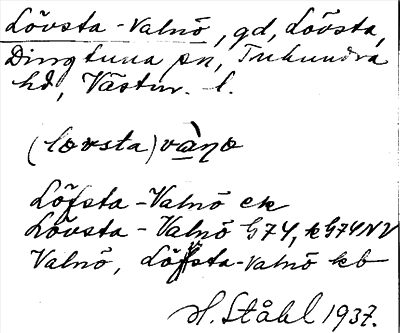 Lövsta-Valnö, gd, Lövsta,
Dingtuna sn, Tuhundra
hd, Västm. l.
(lœvsta)và̱ṇœ
Löfsta-Valnö ek
Lövsta-Valnö G74, kG74NV
Valnö, Löfsta-Valnö kb
H. Ståhl 1937.